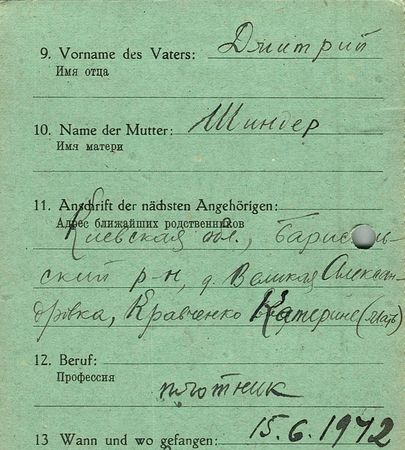 9. Vorname des Vaters: Дмитрий
Имя отца
10. Name der Mutter: Шиндер
Имя матери
11. Anschrift der nächsten Angehörigen:
Адрес ближайших родственников
Киевская обл.,
ский р-н, д. Великая Алексан-
дровка, Кравченко Катерине (мать)
12. Beruf:
Профессия
плотник
13 Wann und wo gefangen: 15.6.1942